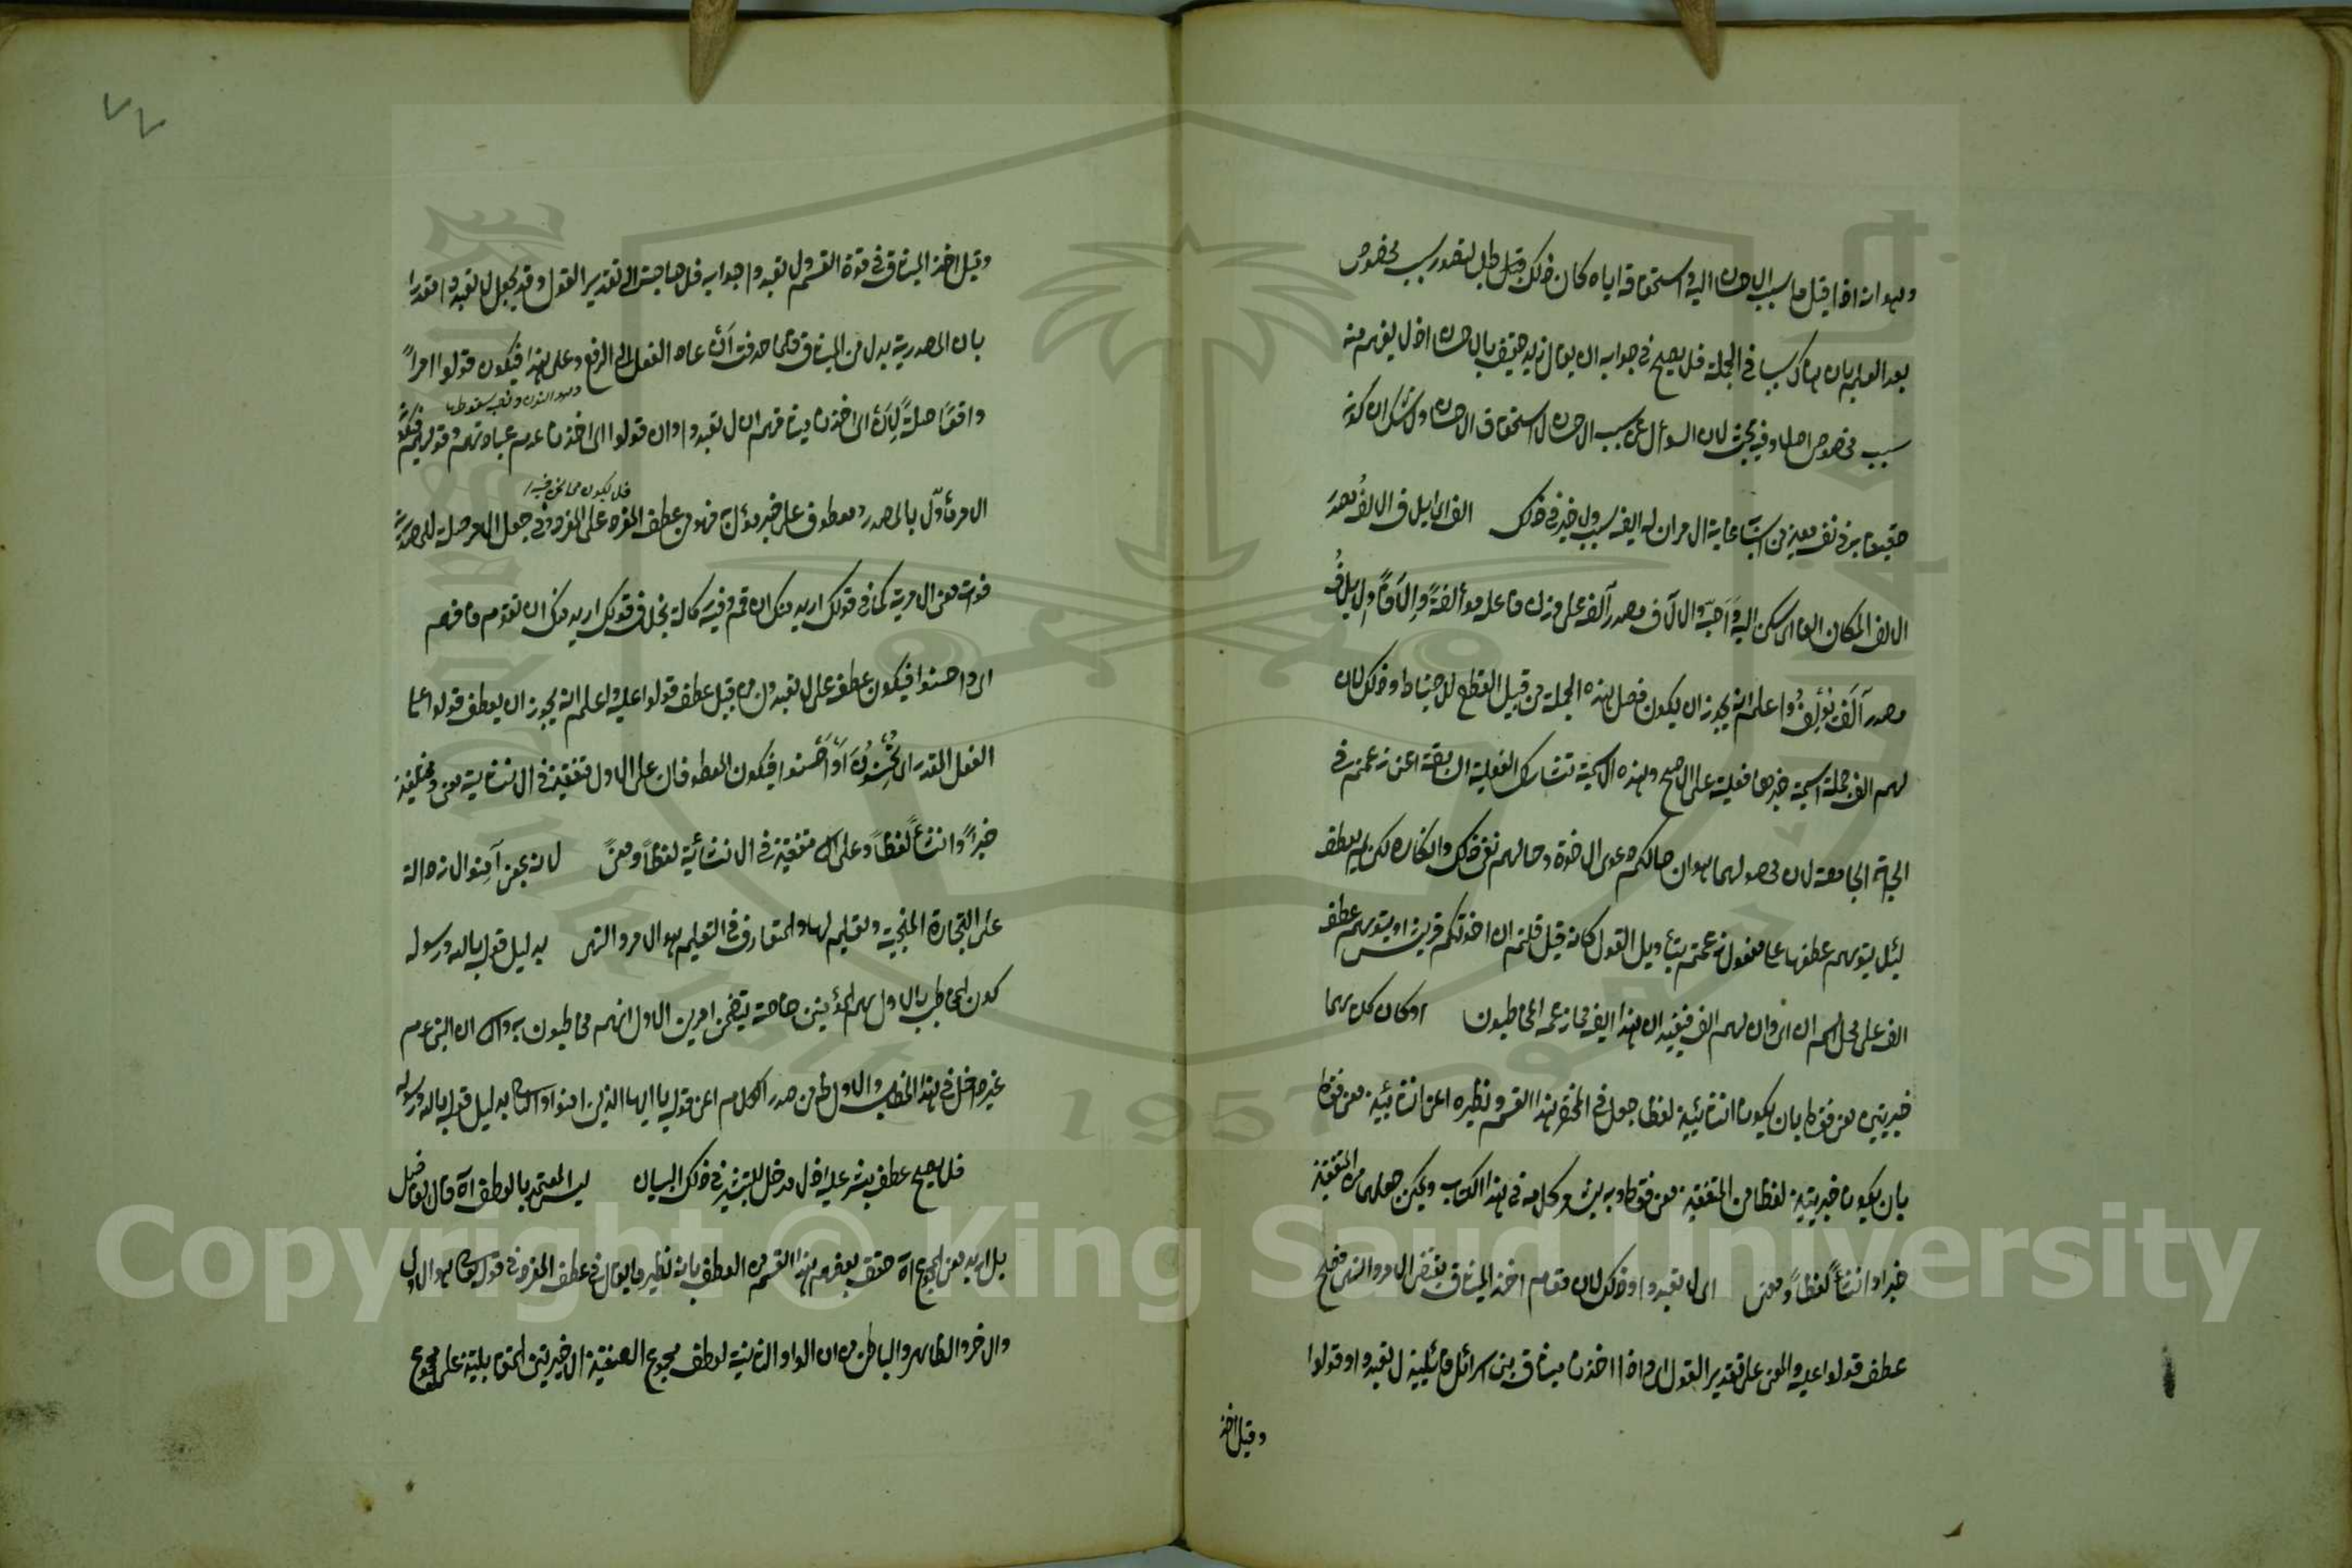 وهو انه اذا قيل ما سبب الاحسان اليه واستحقاقه اياه كان ذلك قبل طلب لتصور سبب مخصوص
بعد العلم بان هناك سببا في الجملة فلا يصح في جوابه ان يقال زيد حقيق بالاحسان اذ لا يفهم منه
سبب مخصوص اصلا وفيه بحث لان السؤال عن سبب الاحسان لا استحقاق الاحسان ولا شك ان كونه
حقيقا به في نفسه معين من اسبابه غاية الامر ان له ايضا سبب ولا ضير في ذلك الف ايلاف الالف مصدر
الالف المكان الفا اى سكن اليه واحبه والالاف مصدر آلف على وزن فاعل مؤالفة وإلافا والايلاف
مصدر آلف يؤلف واعلم انه يجوز ان يكون فصل هذه الجملة من قبيل القطع للاحتياط وذلك لان
لهم الف جملة اسمية خبرها فعلية على الاصح وهذه الاسمية تشارك الفعلية السابقة اعنى زعمتم في
الجهة الجامعة لان محصولهما هو ان حالكم دعوى الاخوة وحالهم نفى ذلك وانكاره لكن لم يعطف
لئلا يتوهم عطفها على مفعول زعمتم بتأويل القول كانه قيل قلتم ان اخوتكم قريش او يتوهم عطف
الف على محل اسم ان اى وان لهم الف فيفيد ان هذا ايضا مما زعمه المخاطبون او كان كل منهما
خبريتين معنى فقط بان يكونا انشائيتين لفظا جعل في المختصر هذا القسم ونظيره اعنى انشائيتين معنى فقط
بان يكونا خبريتين لفظا من المتفقتين معنى فقط وبه يشعر كلامه في هذا الكتاب ويمكن جعلهما من المتفقتين
خبرا وانشاء لفظا ومعنى اى لا تعبدوا وذلك لان مقام اخذ الميثاق يقتضى الامر والنهى فيصح
عطف قولوا عليه والمعنى على تقدير القول اى واذا اخذنا ميثاق بنى اسرائل قائلين لا تعبدوا وقولوا
وقيل اخذ
٧٢
وقيل اخذ الميثاق في قوة القسم ولا تعبدوا جوابه فلا حاجة الى تقدير القول وقد يجعل لا تعبدوا مقدرا
بان المصدرية بدل من الميثاق فلما حذفت أن عاد الفعل الى الرفع وعلى هذا فيكون قولوا امرا
وهو النون وتجب سقوطها
واقعا صلة لأن اى اخذنا ميثاقهم ان لا تعبدوا وان قولوا اى اخذنا عدم عبادتهم وقولهم فيكون
فلا يكون مما نحن فيه
الامر مأولا بالمصدر ومعطوف على خبر مؤل به فهو من عطف المفرد على المفرد وفي جعل الامر صلة للمصدرية
فوات معنى الامرية كما في قولك اريد منك ان قم وفيه كما لا يخفى قولك اريد منك ان تقوم فافهم
اى واحسنوا فيكون عطفه على لا تعبدون من قبيل عطف قولوا عليه واعلم انه يجوز ان يعطف قولوا على
الفعل المقدر اى تحسنون او احسنوا فيكون المعطوفان على الاول متفقين في الانشائية معنى ومختلفين
خبرا وانشاء لفظا وعلى الثانى متفقين في الانشائية لفظا ومعنى لانه بمعنى آمنوا لان دلالته
على التجارة المنجية وتعليم لها والمتعارف في التعليم هو الامر والنهى بدليل قوله بالله ورسوله
كون المخاطب بالاول هم المؤمنين خاصة يتضمن امرين الاول انهم مخاطبون به والثانى ان النبى عم
غير داخل في هذا الخطاب والاول ظ من صدر الكلام اعنى قوله يا ايها الذين امنوا والثانى بدليل قوله بالله ورسوله
فلا يصح عطف بشر عليه اذ لا مدخل للتبشير في ذلك البيان ليس المعتمد بالعطف آه قال الفاضل
بل اريد بعض المجموع آه حقق بعضهم هذا القسم من العطف بانه نظير ما يقال في عطف المفرد في قوله تعالى هو الاول
والاخر والظاهر والباطن من ان الواو الثانية لعطف مجموع الصفتين الاخيرتين المتقابلتين على مجموع